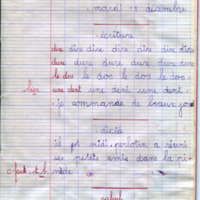 mardi 15 décembre
écriture
dire dire dire dire dire dire dire
dure dure dure dure dure dure
le dos le dos le dos le dos
bien une dent une dent une dent
je commande de beaux
dictée
il est midi. perlotin a réuni
ses petits amis dans la pi-
nède
calcul